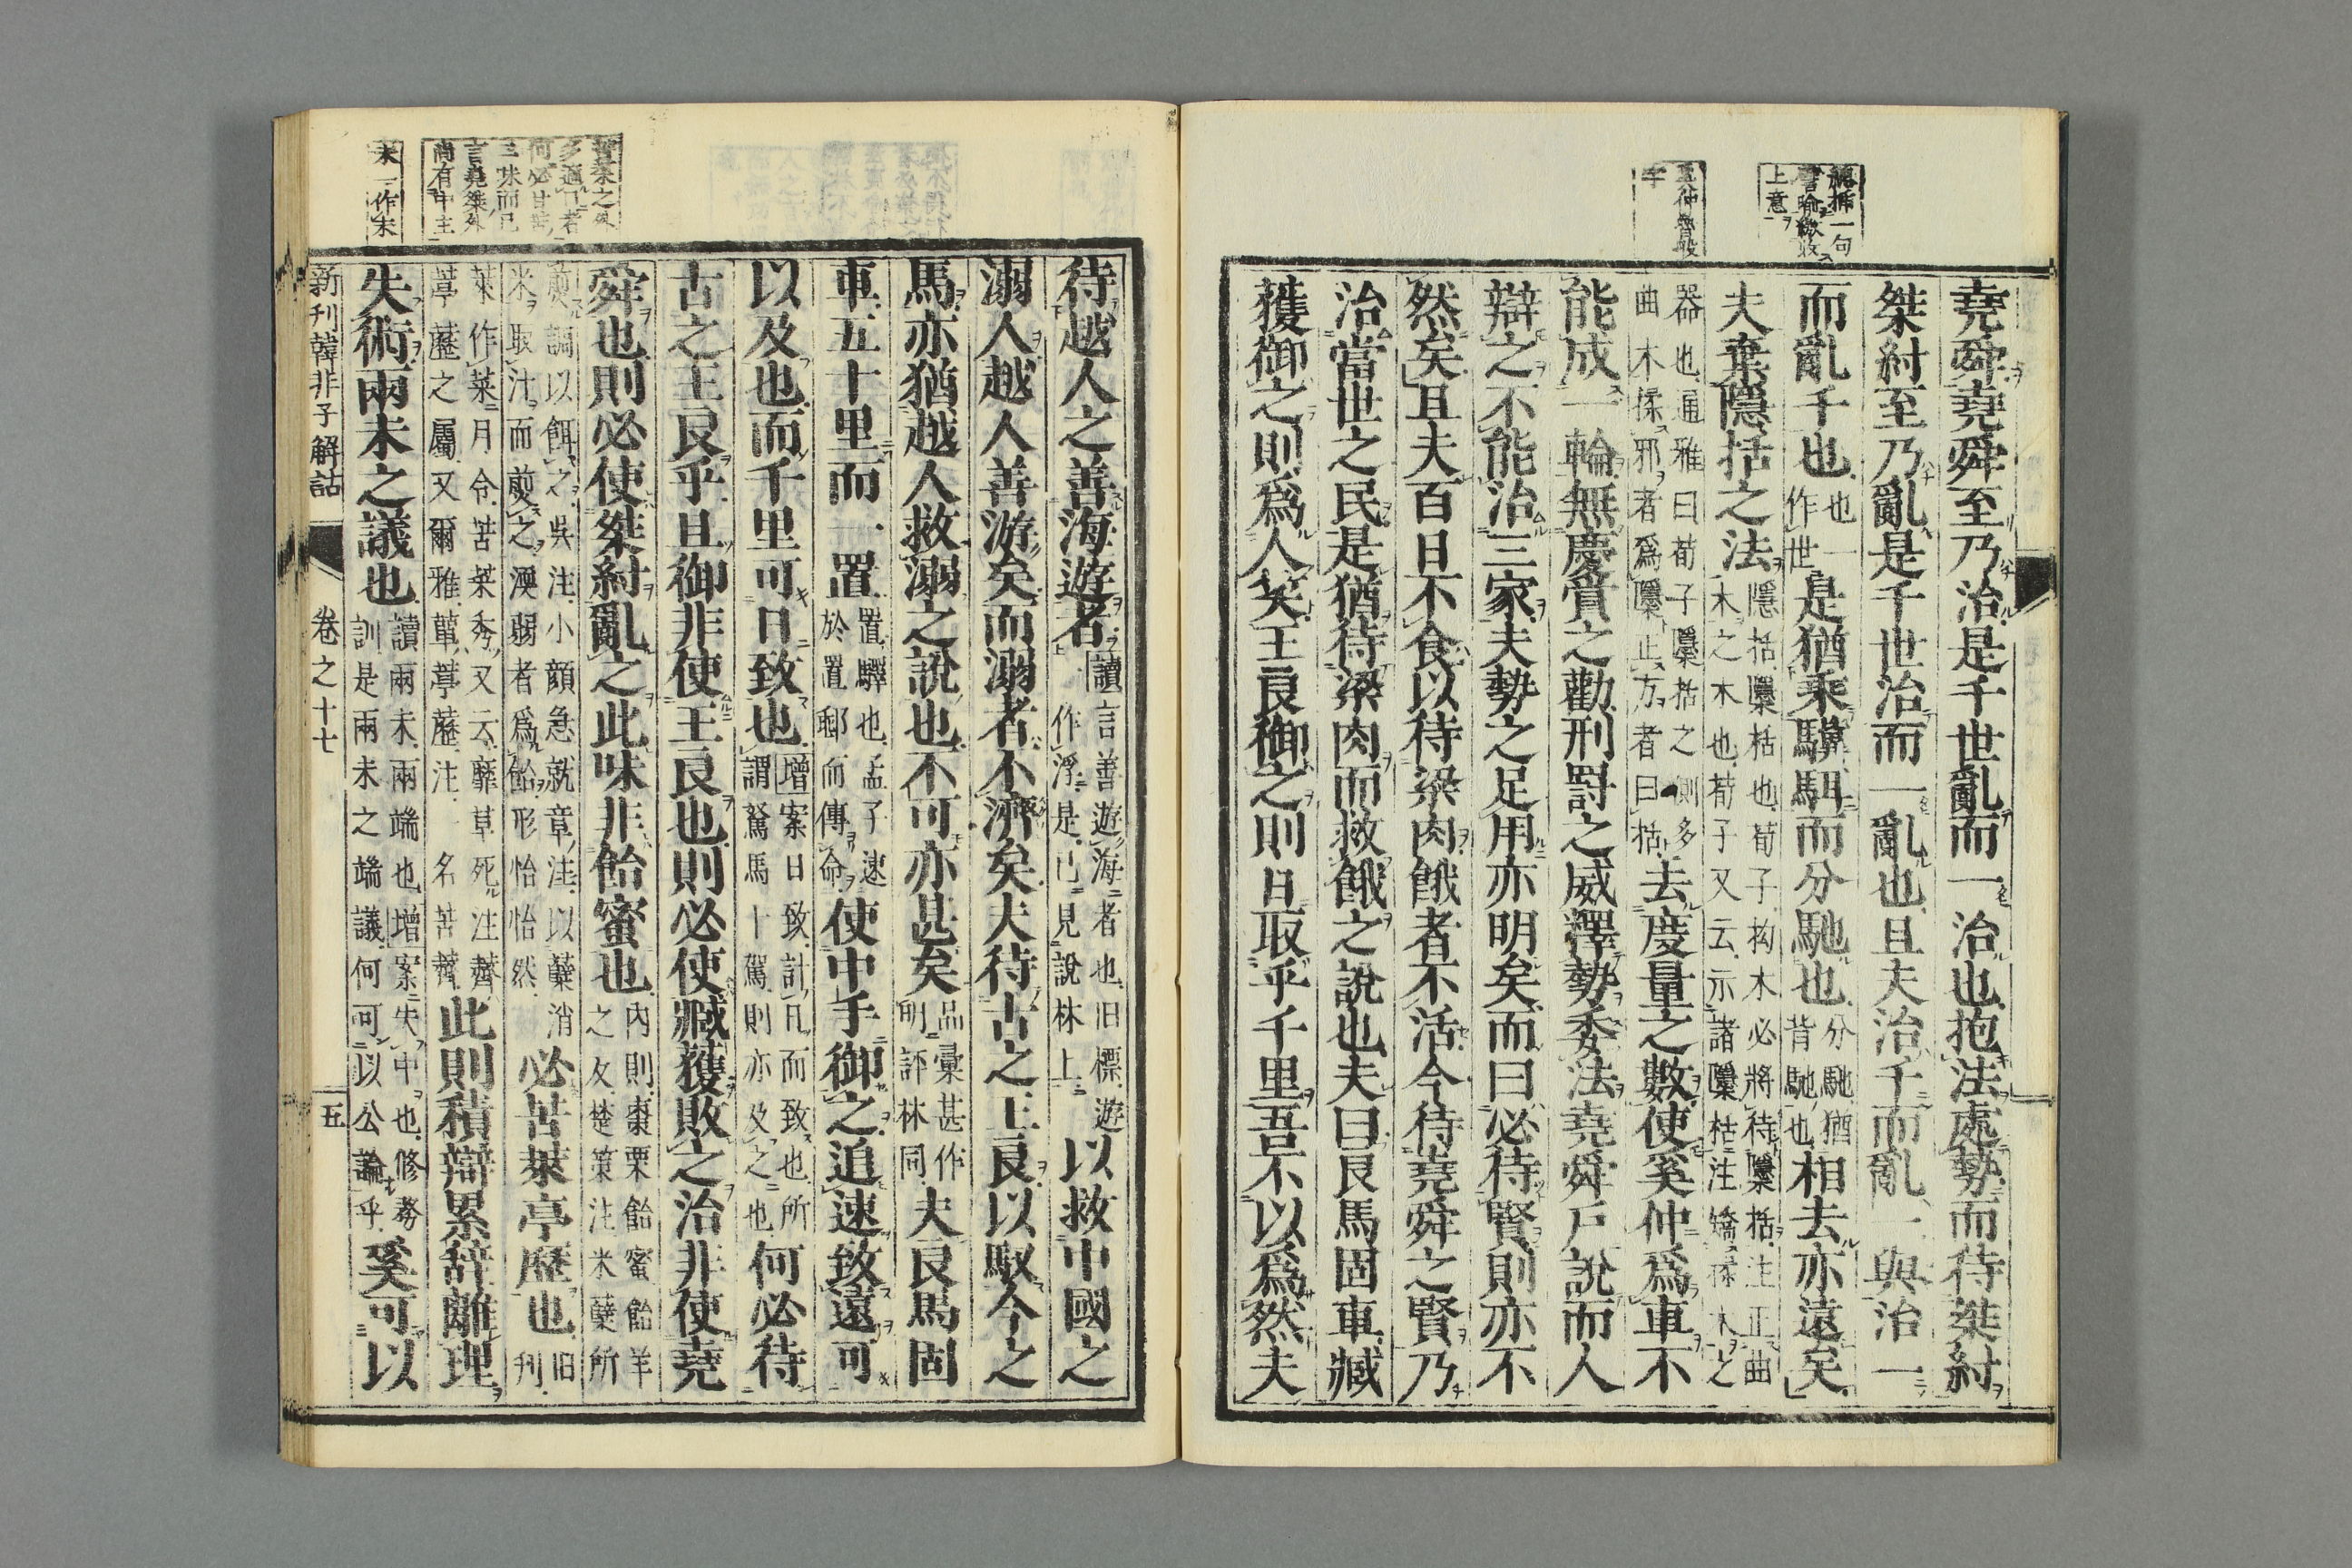 堯舜堯舜至乃治是千世亂而一治也抱法處勢而待桀紂
桀紂至乃亂是千世治而一亂也且夫治千而亂一與治一
而亂千也也一作世是猶乘驥駬而分馳也分馳猶背馳也相去亦遠矣
夫棄隱括之法隱括檃栝也荀子枸木必將待檃栝注正曲木之木也荀子又云示諸檃栝注矯揉木之
器也通雅曰荀子檃栝之側多曲木揉邪者爲檃正方者曰栝去度量之數使奚仲爲車不
能成一輪無慶賞之勸刑罸之威釋勢委法堯舜戶說而人
辯之不能治三家夫勢之足用亦明矣而曰必待賢則亦不
然矣且夫百日不食以待梁肉餓者不活今待堯舜之賢乃
治當世之民是猶待梁肉而救餓之說也夫曰良馬固車臧
獲御之則爲人笑王良御之則日取乎千里吾不以爲然夫
上意
待越人之善海遊者讀言善遊海者也旧標遊作浮是已見說林上以救中國之
溺人越人善游矣而溺者不濟矣夫待古之王良以馭今之
馬亦猶越人救溺之說也不可亦甚矣品彙甚作明評林同夫良馬固
車五十里而一置置驛也孟子速於置郵而傳命使中手御之追速致遠可
以及也而千里可日致也增案日致計凡而致也所謂駑馬十駕則亦及之也何必待
古之王良乎且御非使王良也則必使臧獲敗之治非使堯
舜也則必使桀紂亂之此味非飴蜜也內則棗栗飴蜜飴羊之攵楚策注米糵所
煎調以餌之吳注小顏急就章注以糵消米取汁而煎之渜弱者爲飴形怡怡然必苦萊亭歷也旧刊
萊作菜月令苦菜秀又云靡草死注薺葶藶之屬又爾雅蕇葶藶注名苦薺此則積辯累辞離理
失術兩未之議也讀兩未兩端也增案失中也修務訓是兩末之端議何可以公論乎奚可以
新刊韓非子解詁 卷之十七 五
三味而已
言堯桀外
尚有中主
末一作未